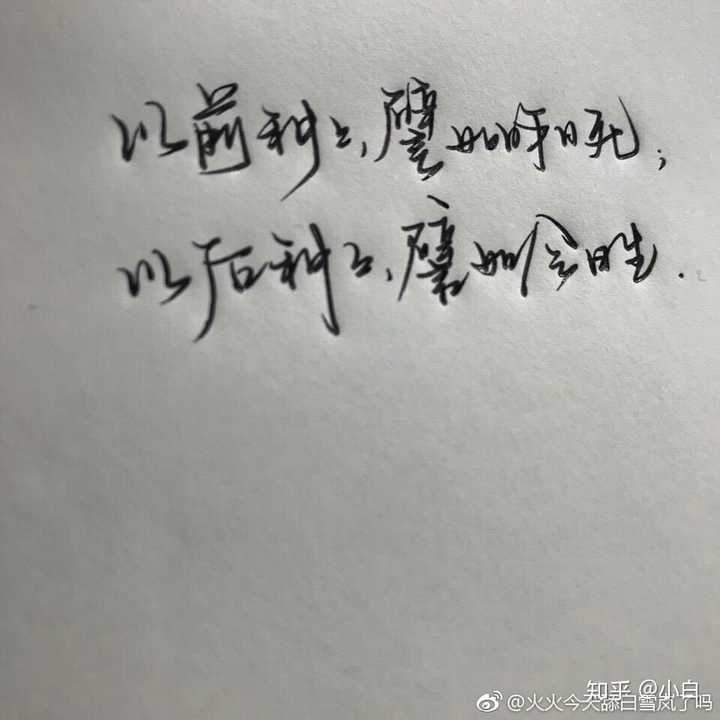 以前种种，譬如昨日死；
以后种种，譬如今日生．
知乎 @小白
@火火今天舔白雪岚了吗